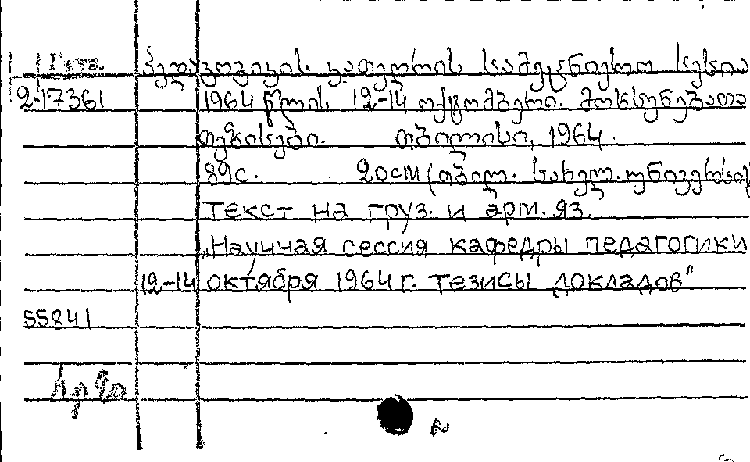 პედაგოგიკის კათედრის სამეცნიერო სესია
2-17361 1964 წლის 12-14 ოქტომბერი. მოხსენებათა
თეზისები. თბილისი, 1964.
89с. 20см (თბილ. სახელ. უნივერსი)
Текст на груз. и арм. яз.
„Научная сессия кафедры педагогики
12-14 октября 1964 г. тезисы докладов"
55841